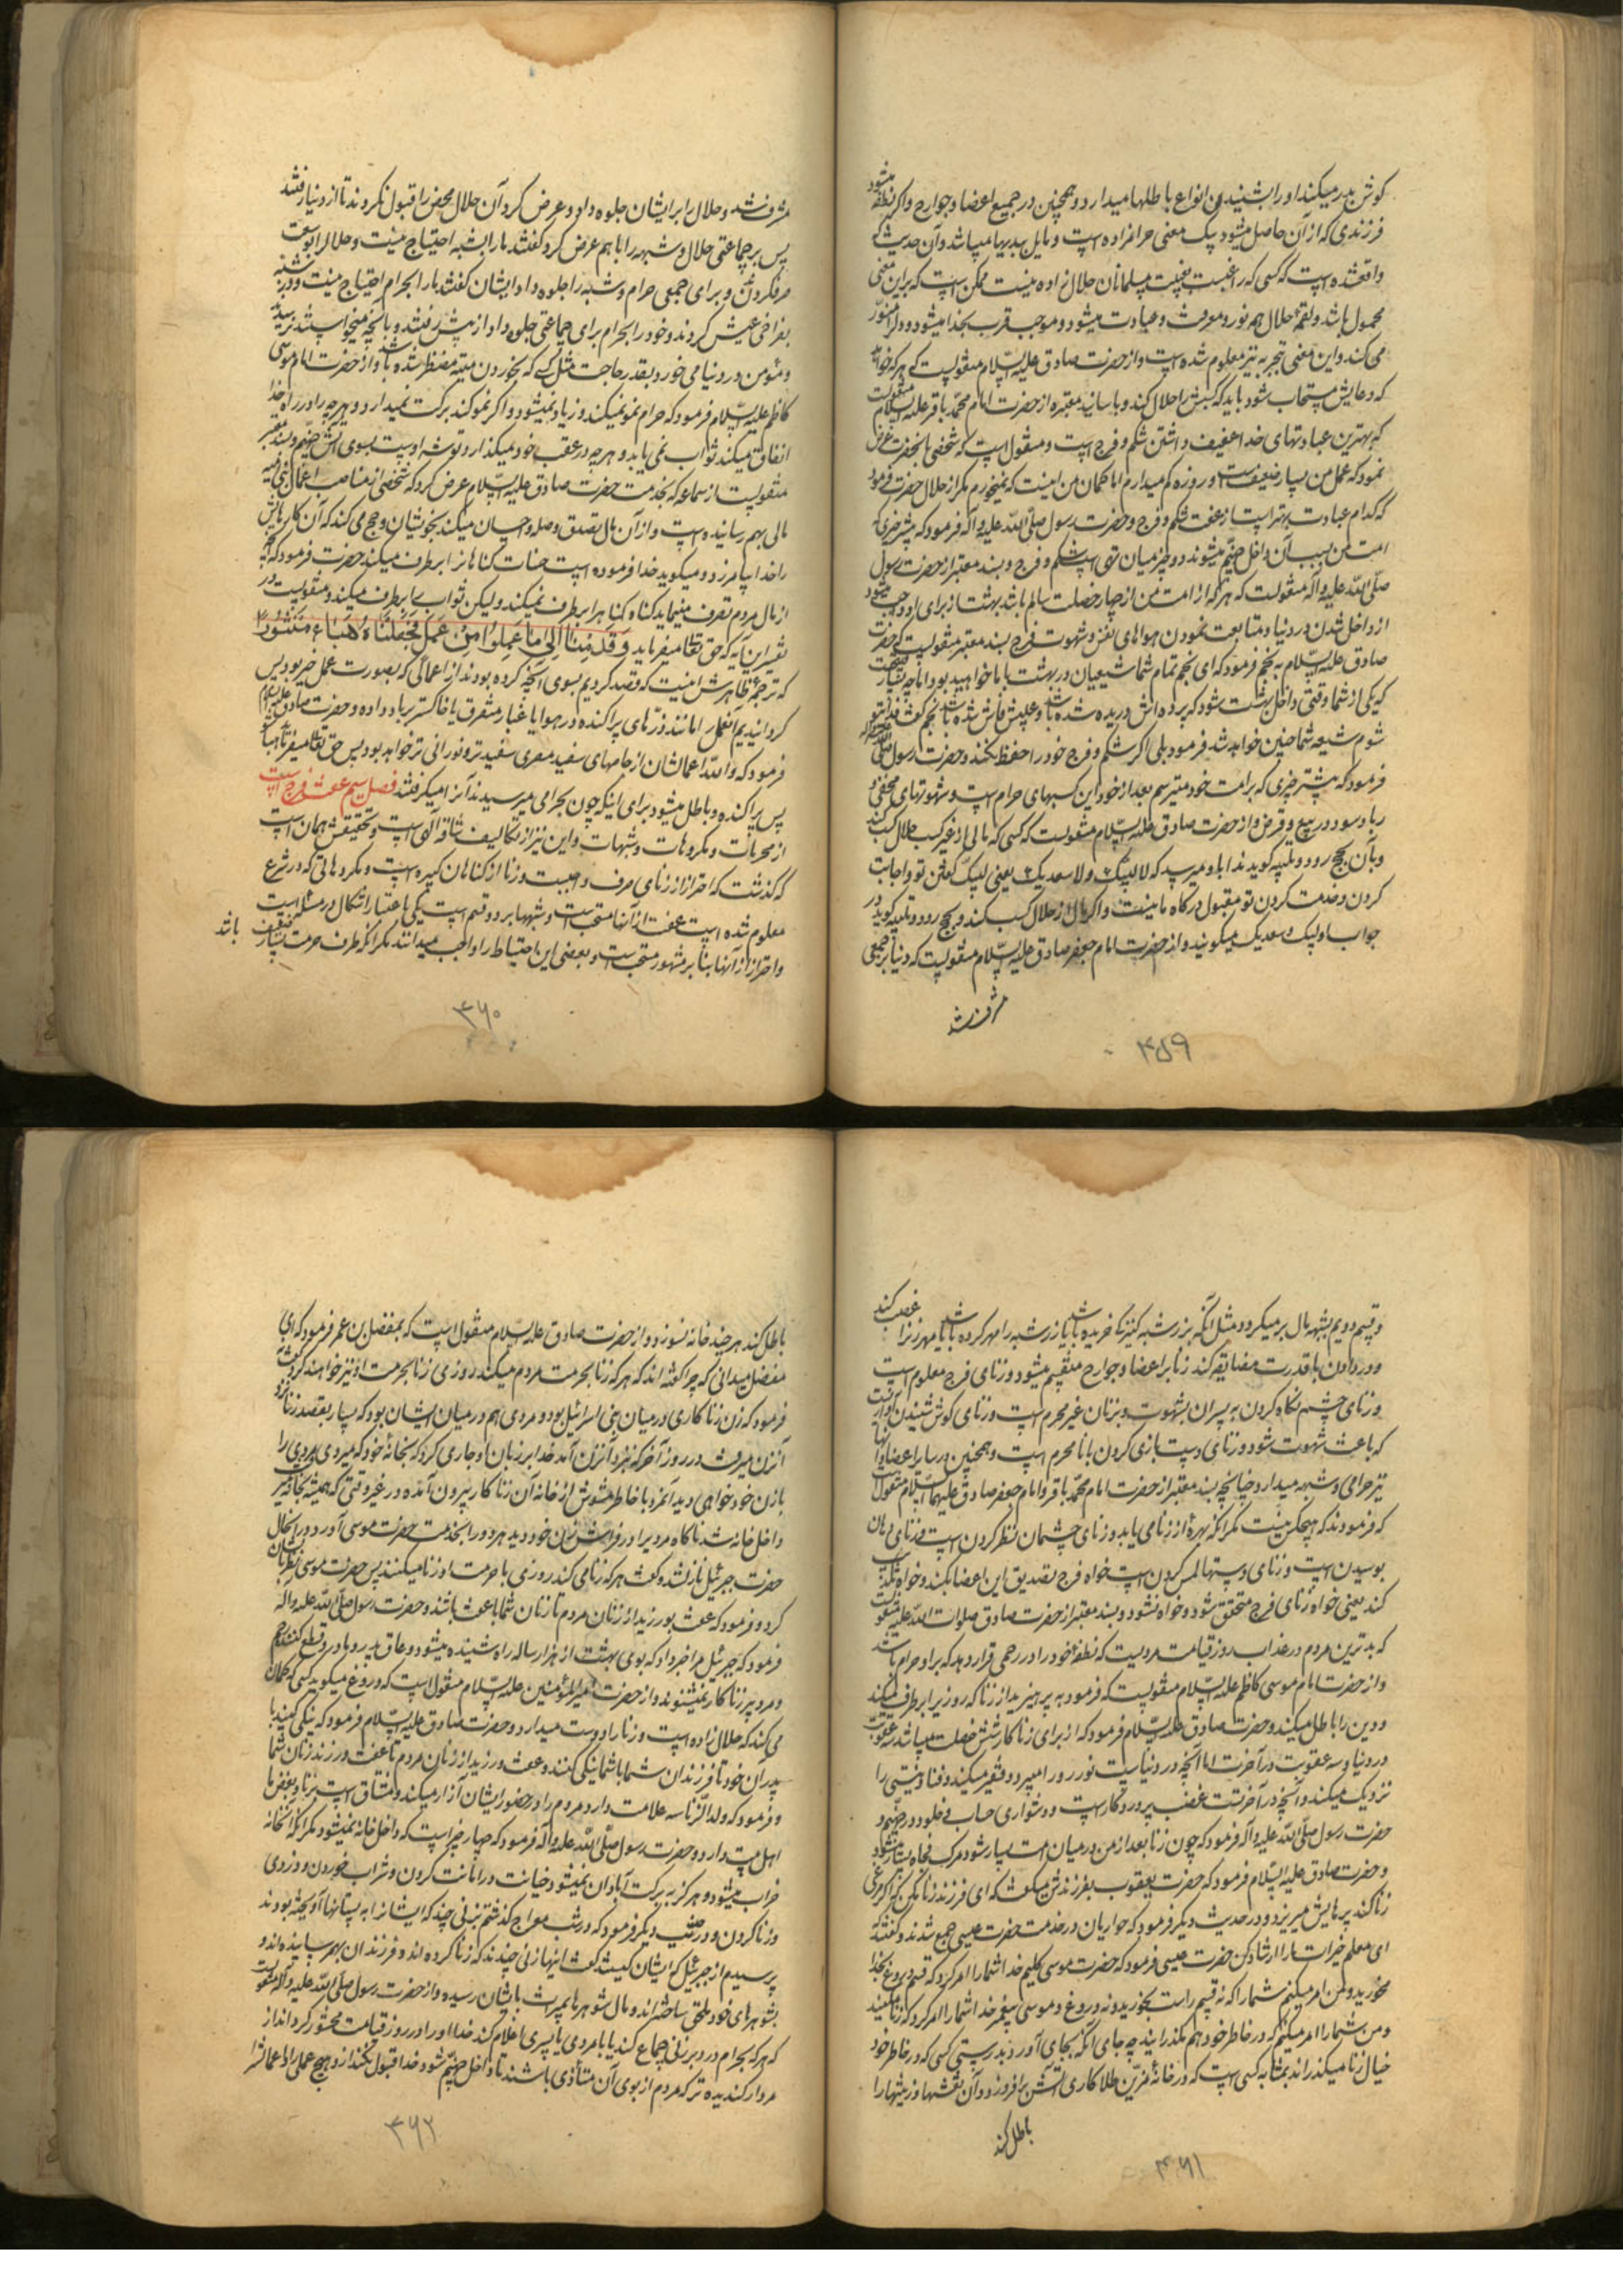 کوش بدر میکند او را بشنیدن انواع باطلها میدارد و همچنین در جمیع اعضا و جوارح و اکر نطفه میشود
فرزندی که از آن حاصل میشود یک معنی حرامزاده است و مایل ببدیها میباشد و آن حدیث که
واقعشده است که کسی که راغبست بغیبت مسلمانان حلال زاده نیست ممکن است که بر این معنی
محمول باشد و لقمهٔ حلال هم نور و معرفت و عبادت میشود و موجب قرب بخدا میشود و دلرا منوّر
می کند و این معنی بتجربه نیز معلوم شده است و از حضرت صادق علیه السّلام منقولست که هر که خواهد
که دعایش مستجاب شود باید که کسبش را حلال کند و باسانید معتبره از حضرت امام محمد باقر علیه السلام منقولست
که بهترین عبادتهای خدا عفیف داشتن شکم و فرج است و منقول است که شخصی بآنحضرت عرض
نمود که عمل من بسیار ضعیفست و روزه کم میدارم اما کمان من اینست که نمیخورم مکر از حلال حضرت فرمود
که کدام عبادت بهتر است از عفت شکم و فرج و حضرت رسول صلّی اللّه علیه و آله فرمود که بیشتر چیزی که
امت من بسبب آن داخل جهنّم میشوند دو چیز میان تهی است شکم و فرج و بسند معتبر از حضرت رسول
صلّی اللّه علیه و آله منقولست که هر که از امت من از چهار خصلت سالم باشد بهشت از برای او واجب میشود
از داخل شدن در دنیا و متابعت نمودن هواهای نفس و شهوت شکم و شهوت فرج بسند معتبر منقولیست که حضرت
صادق علیه السّلام به نجم فرمود که ای نجم تمام شما شیعیان در بهشت با ما خواهید بود اما چه بسیار قبیحست
که یکی از شما وقتی داخل بهشت شود که پرده اش دریده شده باشد و عیبش فاش شده باشد نجم کفت فدای تو
شوم شیعه شما چنین خواهد شد فرمود بلی اکر شکم و فرج خود را حفظ نکند و حضرت رسول صلّی اللّه علیه و آله
فرمود که بیشتر چیزی که بر امت خود میترسم بعد از خود این کسبهای حرام است و شهوتهای مخفی و
ربا و سود در بیع و قرض و از حضرت صادق علیه السّلام منقولست که کسی که مالی از غیر کسب حلال کسب کند
و بآن بحج رود و تلبیه کوید ندا باو میرسد که لا لبیک و لا سعدیک یعنی لبیک کفتن تو و اجابت
کردن و خدمت کردن تو مقبول درکاه ما نیست و اکر مال از حلال کسب کند و بحج رود و تلبیه کوید در
جواب او لبیک و سعدیک میکویند و از حضرت امام جعفر صادق علیه السّلام منقولیست که دنیا بر جمعی
مشرف شد
۳۵۹
مشرف شد و حلال را بر ایشان جلوه داد و عرض کرد آن حلال محض را قبول نکردند تا از دنیا رفتند
پس بر جماعتی حلال و شبهه را با هم عرض کرد کفتند ما را بشبه احتیاج نیست و حلال را بوسعت
صرف کردند و برای جمعی حرام و شبه را جلوه داد ایشان کفتند ما را بحرام احتیاج نیست و در شبه
بفراخی عیش کردند و خود را بحرام برای جماعتی جلوه داد از پیش رفتند و بآنچه میخواستند نرسیدند
و مؤمن در دنیا می خورد بقدر حاجت مثل کسی که بخوردن میته مضطر شده باشد و از حضرت امام موسی
کاظم علیه السّلام فرمود که حرام نمو نمیکند و زیاد نمیشود و اکر نمو کند برکت نمیدارد و هر چه را در راه خدا
انفاق میکند ثواب نمی یابد و هر چه در عقب خود میکذارد توشه اوست بسوی آتش جهنّم و بسند معتبر
منقولیست از سماعه که بخدمت حضرت صادق علیه السّلام عرض کرد که شخصی از مناصب اعمال بنی امیه
مالی بهم رسانیده است و از آن مال تصدق و صله و احسان میکند بخویشان و حج می کند که آن کارهایش
را خدا بیامرزد و میکوید خدا فرموده است حسنات کناهانرا برطرف میکند حضرت فرمود که آنچه
از مال مردم تصرف مینماید کناه کناه را برطرف نمیکند و لیکن ثواب را برطرف میکند و منقولیست در
تفسیر این آیه که حق تعالی میفرماید وَ قَدِمْنٰا اِلی مٰا عَمِلُوا مِنْ عَمَلٍ فَجَعَلْنٰاهُ هَبٰاءً مَنْثُوراً
که ترجمهٔ ظاهرش اینست که قصد کردیم بسوی آنچه کرده بودند از اعمالی که بصورت عمل خیر بود پس
کردانیدیم آنعمل را مانند ذرّهای پراکنده در هوا یا غبار متفرق یا خاکستر بباد داده و حضرت صادق علیه السلام
فرمود که و اللّه اعمالشان از جامهای سفید مصری سفیدتر و نورانی تر خواهد بود پس حق تعالی میفرماید
پس پراکنده و باطل میشود برای اینکه چون بحرامی میرسیدند آنرا میکرفتند فصل سیم عفت فرج است
از محرمات و مکروهات و شبهات و این نیز از تکالیف شاقه الهی است و تحقیقش همان است
که کذشت که احتراز از زنای صرف واجبست و زنا از کناهان کبیره است و مکروهاتی که در شرع
معلوم شده است عفت از آنها مستحب است و شبهها بر دو قسم است یکی باعتبار اشکال در مسئله است
و احتراز از آنها بنا بر مشهور مستحب است و بعضی این احتیاط را واجب میدانند مکر آنکه طرف حرمت بسیار ضعیف باشد
۳۶۰
و قسم دویم بشبهه مال بر میکردد مثل آنکه بزر شبه کنیزکا خریده باشد یا زر شبه را مهر کرده باشد یا مهر زنرا غصب کند
و در دادن با قدرت مضایقه کند زنا بر اعضا و جوارح منقسم میشود و زنای فرج معلوم است
و زنای چشم نکاه کردن به پسران بشهوت و بزنان غیر محرم است و زنای کوش شنیدن آوازیست
که باعث شهوت شود و زنای دست بازی کردن با نامحرم است و همچنین در سایر اعضا و آنها
نیز حرامی و شبهه میدارد چنانچه بسند معتبر از حضرت امام محمّد باقر و امام جعفر صادق علیهما السّلام منقول است
که فرمودند که هیچکس نیست مکر آنکه بهرهٔ از زنا می یابد و زنای چشمان نظر کردن است و زنای دهان
بوسیدن است و زنای دستها لمس کردن است خواه فرج تصدیق این اعضا بکند و خواه تکذیب
کند یعنی خواه زنای فرج متحقق شود و خواه نشود و بسند معتبر از حضرت صادق صلوات اللّه علیه منقول است
که بدترین مردم در عذاب روز قیامت مردیست که نطفهٔ خود را در رحمی قرار دهد که بر او حرام باشد
و از حضرت امام موسی کاظم علیه السّلام منقولیست که فرمود بپرهیزید از زنا که روزیرا برطرف میکند
و دین را باطل میکند و حضرت صادق علیه السّلام فرمود که از برای زناکار شش خصلت میباشد سه عقوبت
در دنیا و سه عقوبت در آخرت اما آنچه در دنیاست نور رو را میبرد و فقیر میکند و فنا و نیستی را
نزدیک میکند و آنچه در آخرتست غضب پروردکار است و دشواری حساب و خلود در جهنّم و
حضرت رسول صلّی اللّه علیه و آله فرمود که چون زنا بعد از من در میان امت بسیار شود مرک فجأه بسیار میشود
و حضرت صادق علیه السّلام فرمود که حضرت یعقوب بفرزندش میکفت که ای فرزند زنا مکن که اکر مرغی
زنا کند پرهایش میریزد و در حدیث دیکر فرمود که حواریان در خدمت حضرت عیسی جمع شدند و کفتند
ای معلم خیرات ما را ارشاد کن حضرت عیسی فرمود که حضرت موسی کلیم خدا شما را امر کرد که قسم دروغ بخدا
مخورید و من امر میکنم شما را که نه قسم راست بخورید و نه دروغ و موسی پیغمبر خدا شما را امر کرد که زنا مکنید
و من شما را امر میکنم که در خاطر خود هم مکذرانید چه جای آنکه بجای آورید بدرستی کسی که در خاطر خود
خیال زنا میکذراند بمثابه کسی است که در خانهٔ مزیّن طلاکاری آتش بر افروزد و آن نقشها و زینتها را
باطل کند
۳۶۱
باطل کند هر چند خانه نسوزد و از حضرت صادق علیه السّلام منقول است که بمفضل بن عمر فرمود که ای
مفضل میدانی که چرا کفته اند که هر که زنا بحرمت مردم میکند روزی زنا بحرمت او نیز خواهند کرد
فرمود که زن زناکاری در میان بنی اسرائیل بود و مردی هم در میان ایشان بود که بسیار بقصد زنا نزد
آنزن میرفت در روز آخر که نزد آنزن آمد خدا بر زبان او جاری کرد که بخانهٔ خود که میروی مردی را
با زن خود خواهی دید آنمرد با خاطر مشوش از خانه آن زناکار بیرون آمده در غیر وقتی که همیشه بخانه میرفت
داخل خانه شد ناکاه مردیرا در فراش زن خود دید هر دو را بخدمت حضرت موسی آورد در آنحال
حضرت جبرئیل نازلشد و کفت هر که زنا می کند روزی با حرمت او زنا میکنند پس حضرت موسی نظر بآنشان
کرد و فرمود که عفت بورزید از زنان مردم تا زنان شما با عفت باشند و حضرت رسول صلّی اللّه علیه و آله
فرمود که جبرئیل مرا خبر داد که بوی بهشت از هزار ساله راه شنیده میشود و عاق پدر و مادر و قطع کننده رحم
و مرد پیر زناکار نمیشنوند و از حضرت امیر المؤمنین علیه السّلام منقول است که دروغ میکوید کسی که کمان
می کند که حلال زاده است و زنا را دوست میدارد و حضرت صادق علیه السّلام فرمود که نیکی کنید با
پدران خود تا فرزندان شما با شما نیکی کنند و عفت ورزید از زنان مردم تا عفت ورزند زنان شما
و فرمود که ولد الزّنا سه علامت دارد مردم را در حضور ایشان آزار میکند و مشتاق است بزنا و بغض ما
اهل بیت دارد و حضرت رسول صلّی اللّه علیه و آله فرمود که چهار چیز است که داخل خانه نمیشود مکر آنکه آنخانه
خراب میشود و هرکز به برکت آبادان نمیشود خیانت در امانت کردن و شراب خوردن و دزدی
و زنا کردن و در حدیث دیکر فرمود که در شب معراج کذشتم بزنی چند که ایشانرا به پستانها آویخته بودند
پرسیدم از جبرئیل که ایشان کیستند کفت اینها زنی چندند که زنا کرده اند و فرزندان بهم رسانیده اند و
بشوهرهای خود ملحق ساخته اند و مال شوهرها بمیراث بایشان رسیده و از حضرت رسول صلّی اللّه علیه و آله منقول است
که هر که بحرام در دبر زنی جماع کند یا با مردی یا پسری اغلام کند خدا او را در روز قیامت محشور کرداند از
مردار کندیده تر که مردم از بوی آن متأذی باشند تا داخل جهنّم شود و خدا قبول نکند از او هیچ عملی را و اعمالش را
۳۶۲